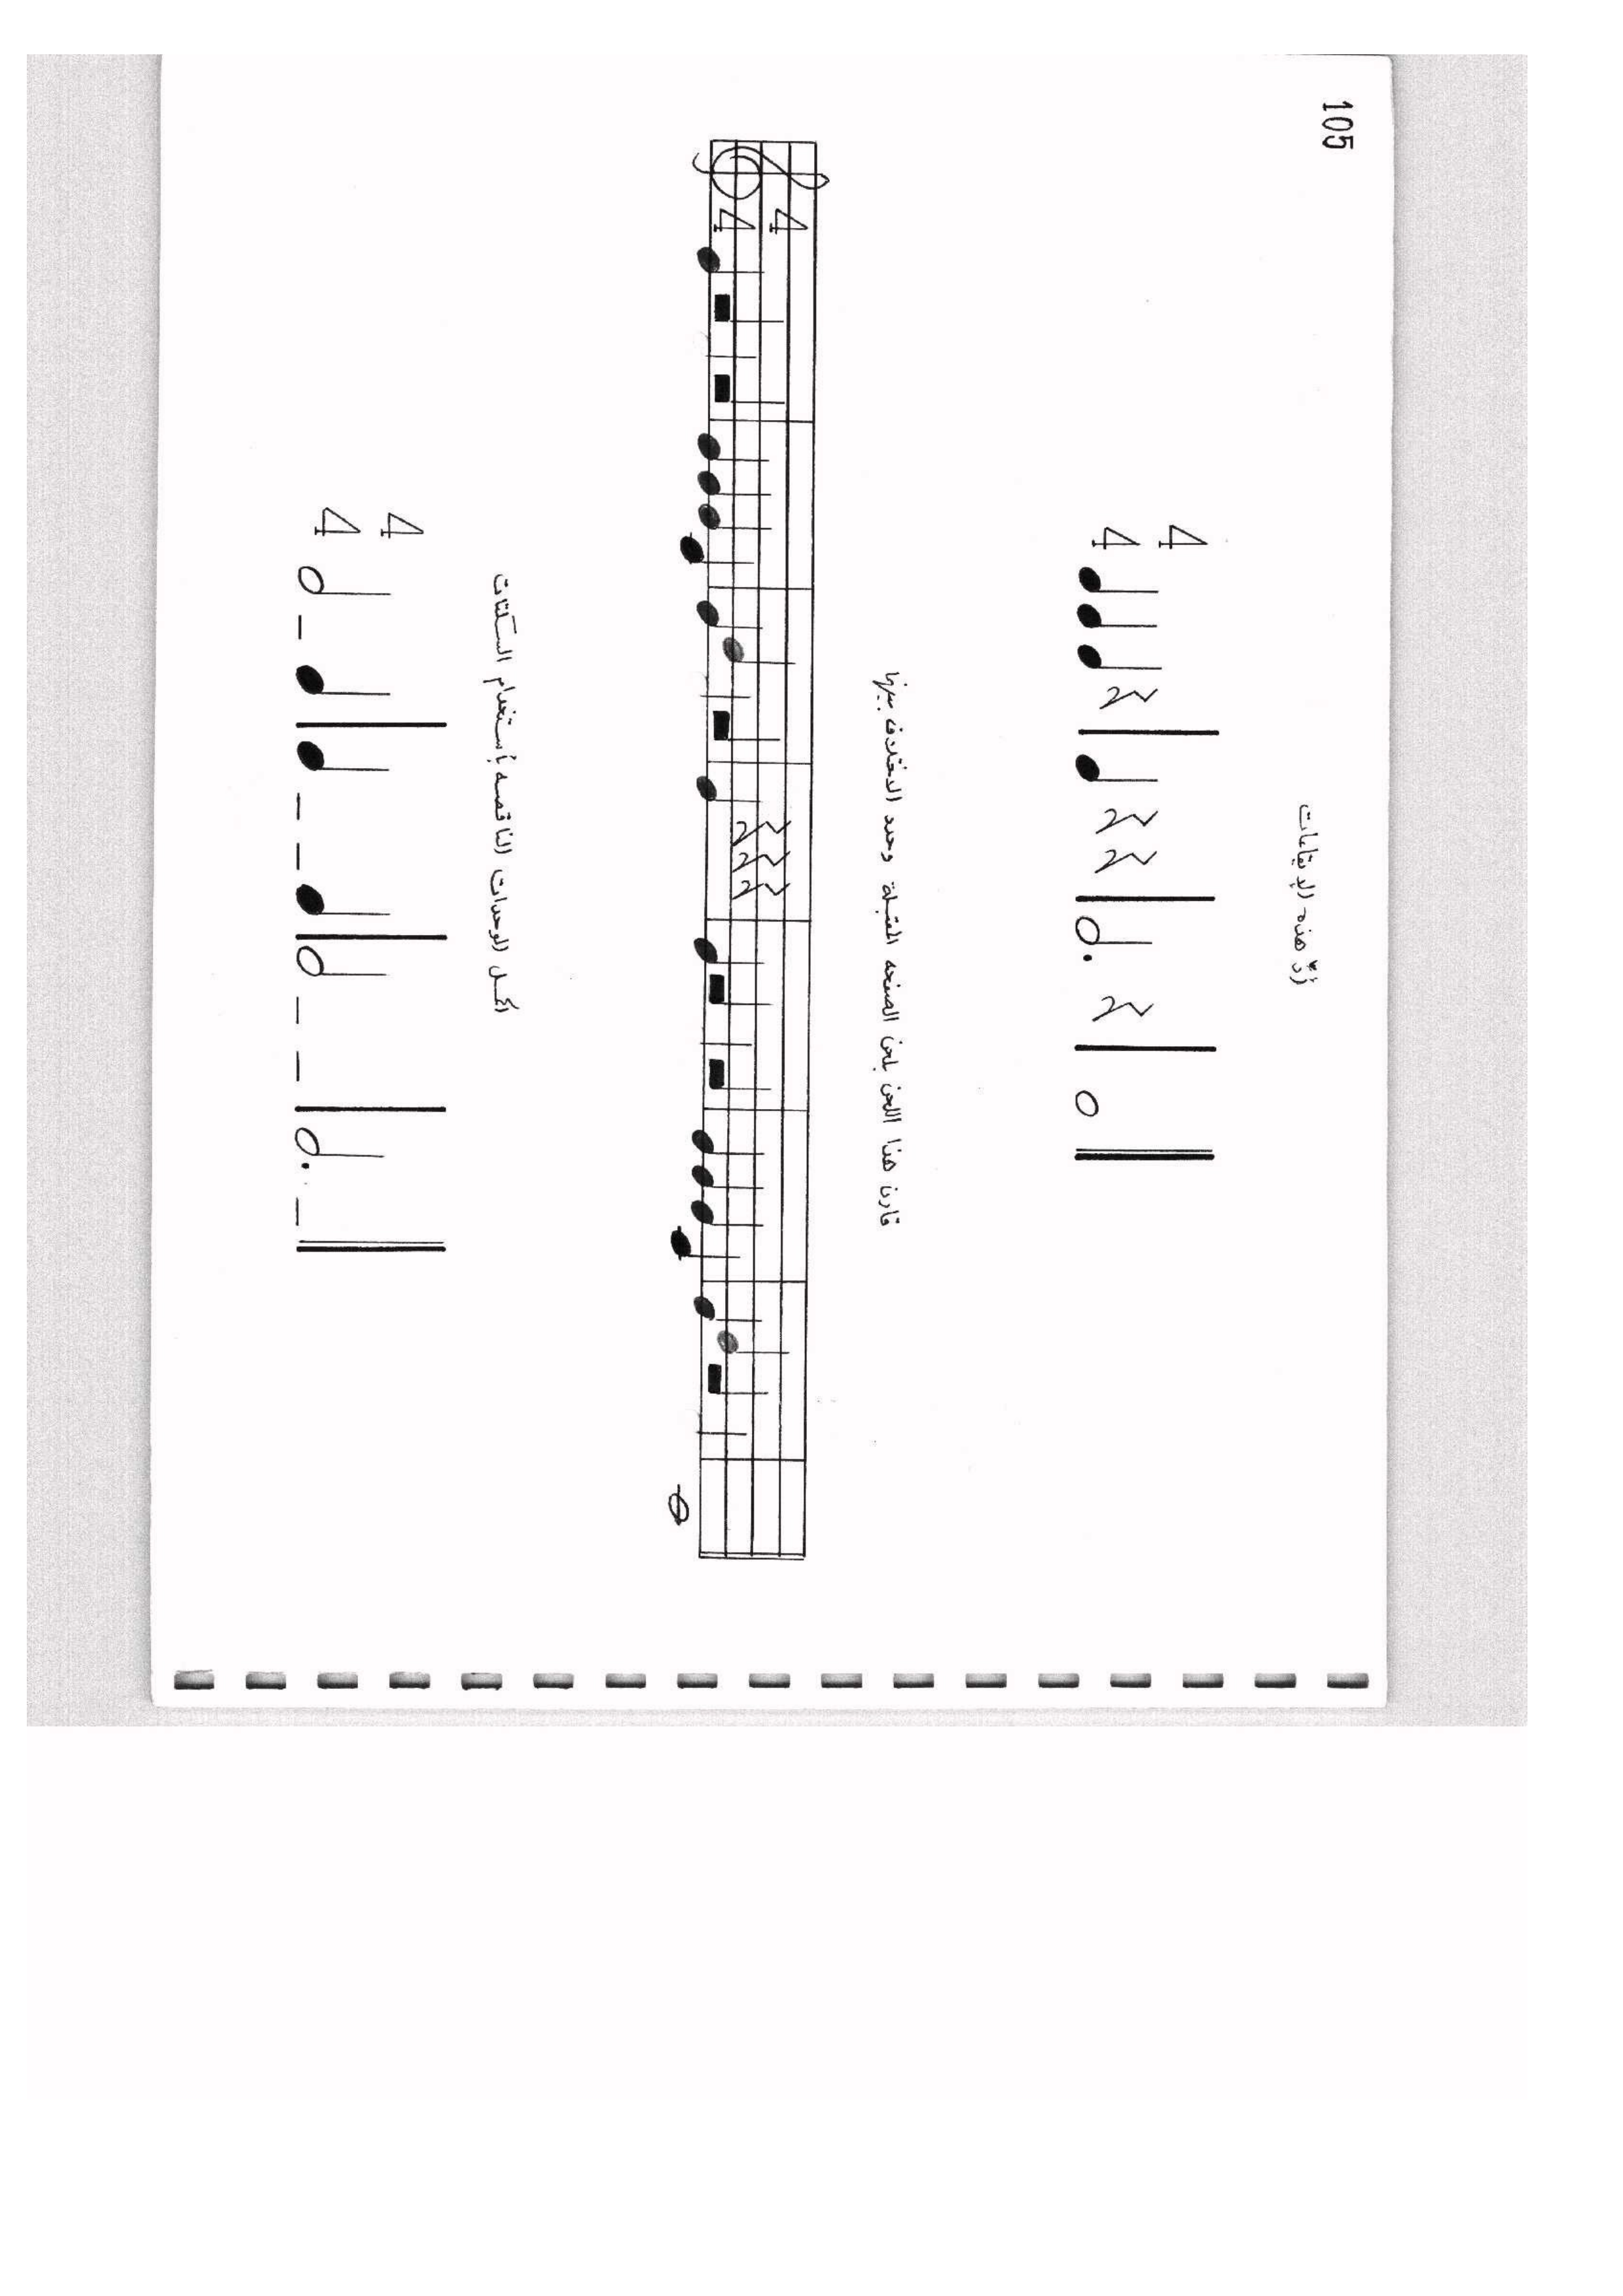 105
أدّ هذه الإيقاعات
4
4
قارن هذا اللحن بلحن الصفحه المقبلة وحدد الاختلاف بينها
4
4
أكمل الوحدات الناقصه بأستخدام السكتات
4
4